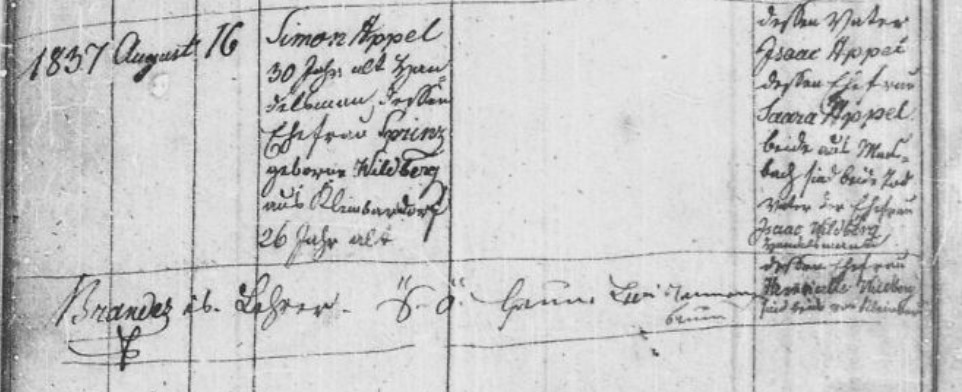 1837 August 16
Simon Appel
30 Jahr alt Han
delsman, dessen
Ehefrau Sprinz
geborne Wildberg
aus Kleinbardorf
26 Jahr alt
dessen Vater
Isaac Appel
dessen Ehefrau
Saara Appel
beide aus Mas-
bach sind beide Tod
Vater der Ehefrau
Isaac Wildberg
Handelsmann
dessen Ehefrau
Wildberg
sind beide von Kleinbar
Brandes is. Lehrer.